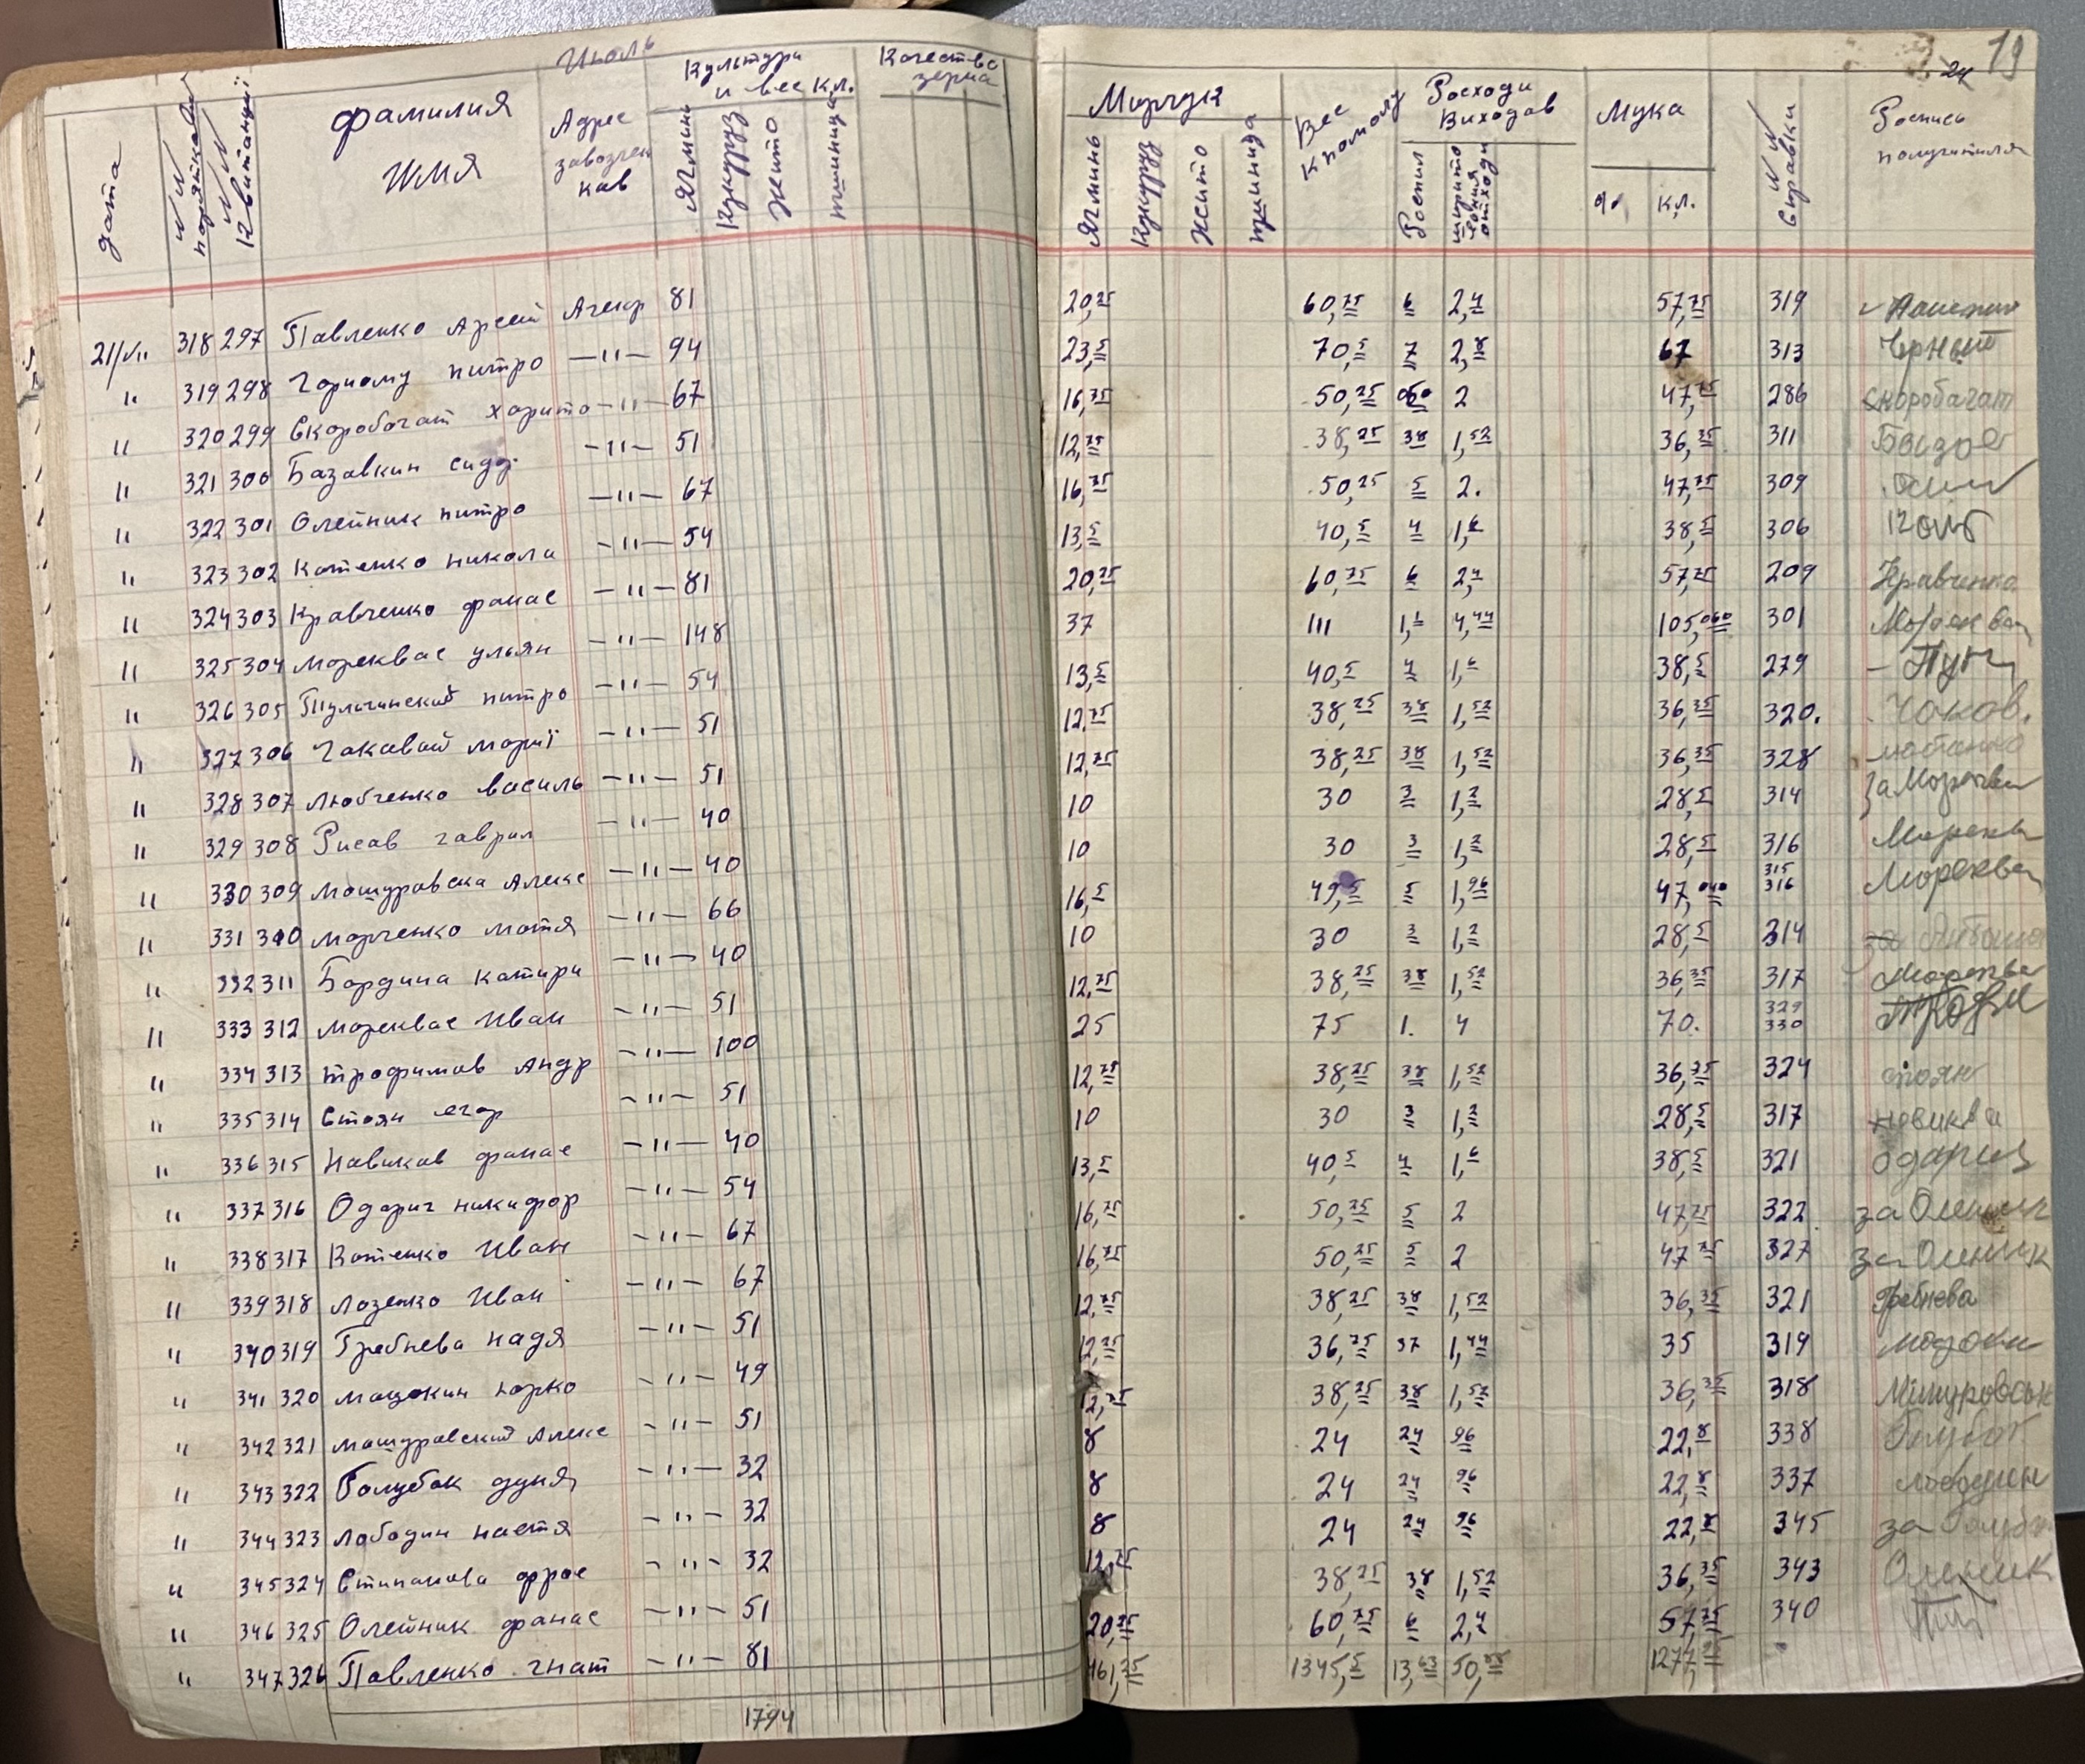 Июль
19
24
дата
N N порятков
N N Квитанций
фамилия Имя
Адрес завозчиков
Культури и вес кл.
Ягминь Кукуруз Жито пшиница
Качества зерна
Марчук
Ягминь Кукуруз Жито пшиница
Вес к помолу
Росходи Виходав
Роспил
отходи
Мука
%. кл.
N N Справки
Роспись получитиля
21/VII 318 297 Павленко Арсей Агенр 81 20,25 60,75 6 2,4 57,75 319
" 319 298 Чорному питро —"— 94 23,5 70,5 7 2,8 67 313 Чорный
" 320 299 Скоробогат Харито —"— 67 16,75 50,25 050 2 47,75 286 Скоробагат
" 321 300 Базавкин сидр —"— 51 12,75 38,25 38 1,52 36,35 311
" 322 301 Олейник питро —"— 67 16,75 50,25 5 2. 47,75 309
" 323 302 Котенко никола —"— 54 13,5 40,5 4 1,6 38,5 306
" 324 303 Кравченко фанас —"— 81 20,25 60,75 6 2,4 57,75 209 Кравченко
" 325 304 Мореквас ульян —"— 148 37 111 1,1 4,44 105,060 301 Мореквас
" 326 305 Пульчинский питро —"— 54 13,5 40,5 4 1,6 38,5 279
" 327 306 Чакавай марії —"— 51 12,75 38,25 38 1,52 36,35 320. Чаков.
" 328 307 Любченко василь —"— 51 12,75 38,25 38 1,52 36,35 328
" 329 308 Рисав гаврил —"— 40 10 30 3 1,2 28,5 314 за Моречвас
" 330 309 Машуровска Алекс —"— 40 10 30 3 1,2 28,5 316
" 331 310 Марченко мотя —"— 66 16,5 49,5 5 1,96 47,040 315 316 Мореквас
" 332 311 Бордина катири —"— 40 10 30 3 1,2 28,5 314 за
" 333 312 Мореквас Иван —"— 51 12,75 38,25 38 1,52 36,35 317 Мореквас
" 334 313 Трофимов Андр —"— 100 25 75 1. 4 70. 329 330 Трофи
" 335 314 Стоян егор —"— 51 12,75 38,25 38 1,52 36,35 324 стоян
" 336 315 Навикав фанас —"— 40 10 30 3 1,2 28,5 317 новикова
" 337 316 Одарич никифор —"— 54 13,5 40,5 4 1,6 38,5 321 Одарич
" 338 317 Котенко Иван —"— 67 16,75 50,25 5 2 47,75 322 за Олейник
" 339 318 Лазенко Иван —"— 67 16,75 50,25 5 2 47,75 327 за Олейник
" 340 319 Гребнева надя —"— 51 12,75 38,25 38 1,52 36,35 321 Гребнева
" 341 320 Мацокин юрко —"— 49 12,25 36,75 37 1,44 35 319 мацокин
" 342 321 Машуровский Алекс —"— 51 12,75 38,25 38 1,52 36,35 318 Мішуровськ
" 343 322 Голубок дуня —"— 32 8 24 24 96 22,8 338 Голубок
" 344 323 Лободин настя —"— 32 8 24 24 96 22,8 337 лободин
" 345 324 Стипанова фрос —"— 32 8 24 24 96 22,8 345 за Голубок
" 346 325 Олейник фанас —"— 51 12,75 38,25 38 1,52 36,35 343 Олейник
" 347 326 Павленко гнат —"— 81 20,25 60,75 6 2,4 57,75 340
1794 461,25 1345,5 13,63 50,88 1277,25